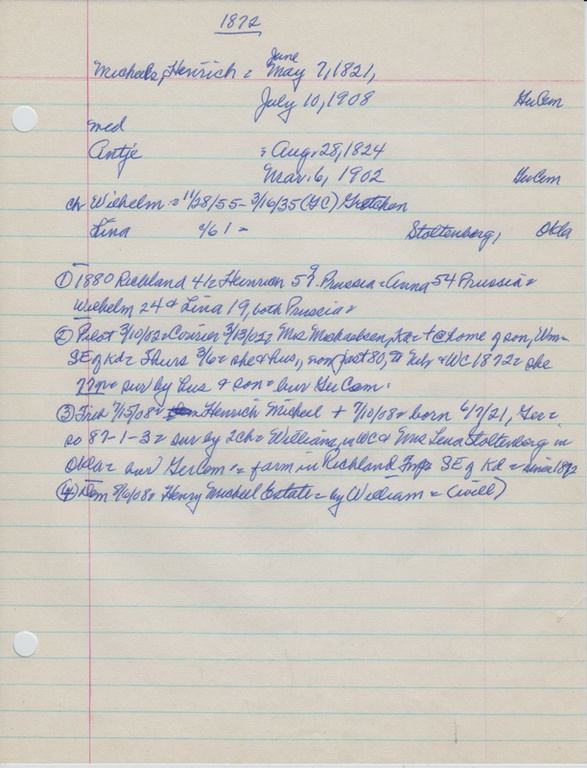 1872
June
Michaels, Henrich = May 7, 1821,
July 10, 1908 GerCem
med
Antje = Aug. 28, 1824
Mar. 6, 1902 GerCem
ch Wilhelm = 11/28/55 - 3/16/35 (GC) Gretchen
Lina c/61 = Stoltenberg, Okla
① 1880 Richland 41= Heinrich 59 Prussia = Anna 54 Prussia =
Wilhelm 24 & Lina 19, both Prussia =
② Pilot 3/10/02 = Courier 3/13/02 = Mrs Michaelsen, = + @ home of son, Wm =
SE of Kd = Thurs 3/6 = she & hus., non past 80, & WC 1872 = she
77 = sur by hus & son = bur GerCem.
③ 7/15/08 = Henrich Micheel + 7/10/08 = born 6/7/21, Ger =
so 87-1-3 = sur by 2 ch = William, in WC & Mrs Lena Stoltenberg in
Okla = bur GerCem = farm in Richland Twp = SE of Kd = since 1872
④ Dem 8/6/08 = Henry Micheel Estate = by William = (will)